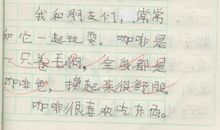 我和朋友们,常常
和它一起玩耍。咖啡是
一只卷毛狗,全身都是
咖啡色,摸起来很舒服
咖啡很喜欢吃东西。